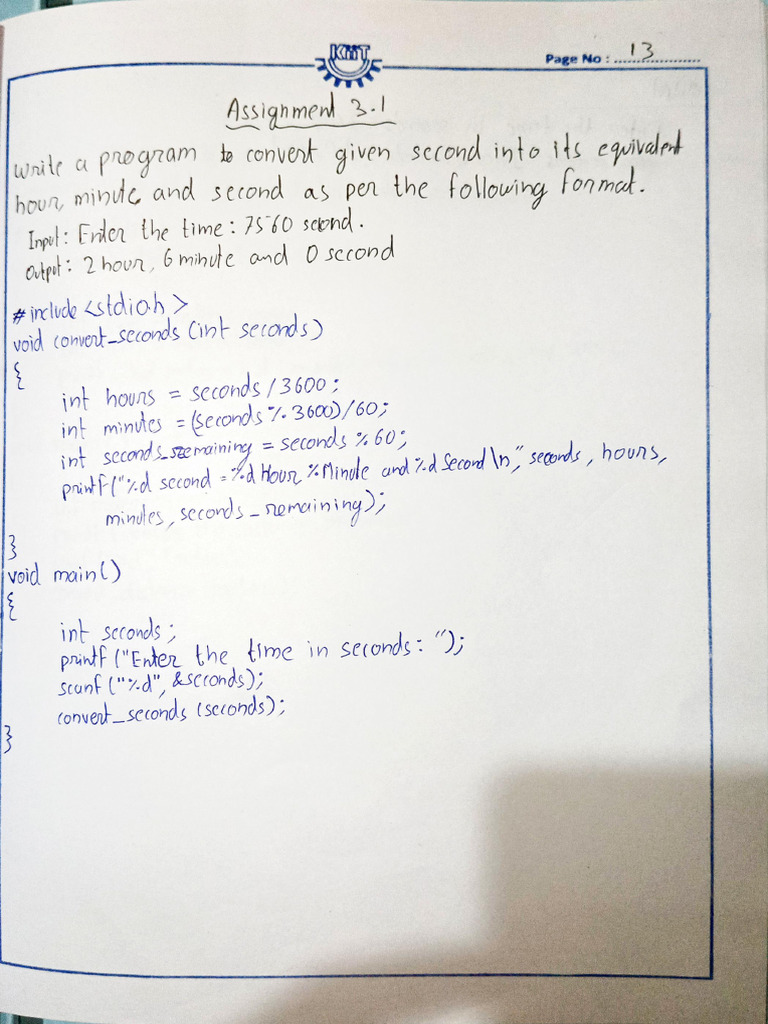 KiiT
Page No : 13
Assignment 3.1
Write a program to convert given second into its equivalent
hour, minute and second as per the following format.
Input: Enter the time: 7560 second.
Output: 2 hour, 6 minute and 0 second
#include <stdio.h>
void convert_seconds (int seconds)
{
int hours = seconds / 3600;
int minutes = (seconds % 3600)/60;
int seconds_remaining = seconds % 60;
printf("%d second = %d Hour % Minute and %d Second \n", seconds, hours,
minutes, seconds_remaining);
}
void main()
{
int seconds;
printf ("Enter the time in seconds: ");
scanf ("%d", &seconds);
convert_seconds (seconds);
}